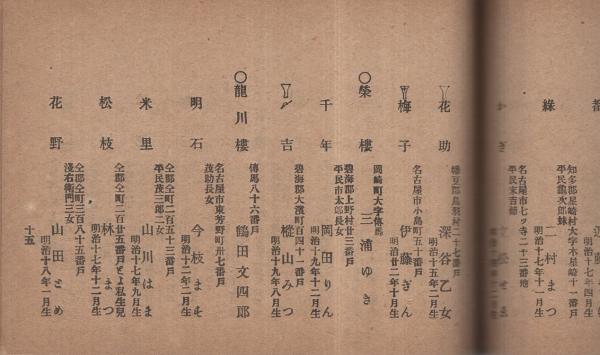 都
知多郡星崎村大字本星崎十一番戸
平民龜次郎妹
綠
二村まつ
明治十七年十一月生
名古屋市七ツ寺二十三番地
平民末吉
花助
深谷乙女
明治十五年二月生
名古屋市小島町五十番戸
梅子
伊藤ぎん
明治廿二年十月生
岡崎町大字傳馬
○榮樓
三浦ゆき
碧海郡上野村廿三番戸
平民市太郎長女
千年
岡田りん
明治十九年十二月生
碧海郡大濱町百四十一番戸
吉
樅山みつ
明治十九年八月生
傳馬八十六番戸
○龍川樓
鶴田文四郎
名古屋市東芳野町卅七番戸
茂助長女
明石
今枝ませ
明治十二年二月生
仝郡仝町二百五十三番戸
平民茂三郎二女
米里
山川はま
明治十七年九月生
仝郡仝町二百廿五番戸とよ私生兒
松枝
林まつ
明治十七年十二月生
仝郡仝町三百八十五番戸
淺右衛門三女
花野
山田とめ
明治十八年一月生
十五